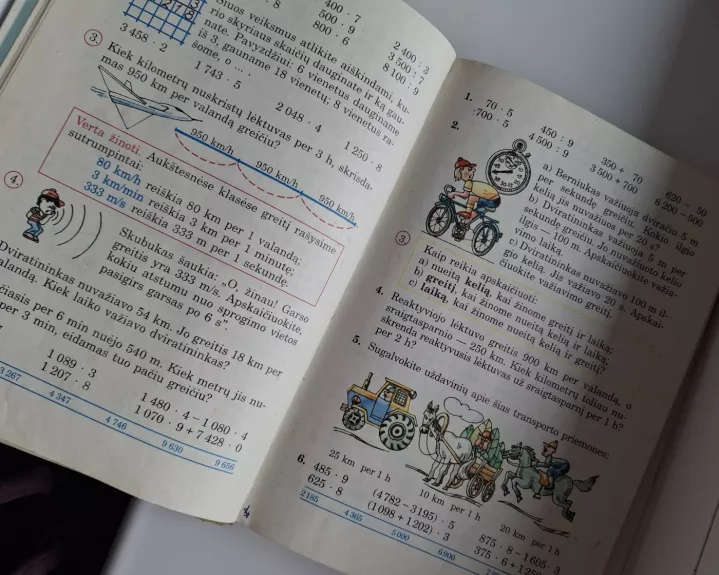 217
· 8
400 · 7
500 · 9
800 · 6
2 400 : 3
3 500 : 7
8 100 : 9
Šiuos veiksmus atlikite aiškindami, ku-
rio skyriaus skaičių dauginate ir ką gau-
nate. Pavyzdžiui: 6 vienetus dauginame
iš 3, gauname 18 vienetų; 8 vienetus ra-
šome, o ...
3 458 · 2
1 743 · 5
2 048 · 4
1 250 · 8
3. Kiek kilometrų nuskristų lėktuvas per 3 h, skrisda-
mas 950 km per valandą greičiu?
950 km/h
950 km/h
950 km/h
Verta žinoti. Aukštesnėse klasėse greitį rašysime
sutrumpintai:
80 km/h reiškia 80 km per 1 valandą;
3 km/min reiškia 3 km per 1 minutę;
333 m/s reiškia 333 m per 1 sekundę.
4.
Skubukas šaukia: „O, žinau! Garso
greitis yra 333 m/s. Apskaičiuokite,
kokiu atstumu nuo sprogimo vietos
pasigirs garsas po 6 s".
Dviratininkas nuvažiavo 54 km. Jo greitis 18 km per
alandą. Kiek laiko važiavo dviratininkas?
čiasis per 6 min nuėjo 540 m. Kiek metrų jis nu-
per 3 min, eidamas tuo pačiu greičiu?
1 089 · 3
1 207 · 8
1 480 · 4 – 1 080 · 4
1 070 · 9 + 7 428 · 0
3 267
4 347
4 746
9 630
9 656
1.
70 · 5
700 · 5
450 : 9
4 500 : 9
350 + 70
3 500 + 700
620 – 50
6 200 – 500
2.
a) Berniukas važiuoja dviračiu 5 m
per sekundę greičiu. Kokio ilgio
kelią jis nuvažiuos per 20 s?
b) Dviratininkas važiuoja 5 m per
sekundę greičiu. Jo nuvažiuoto kelio
ilgis — 100 m. Apskaičiuokite važia-
vimo laiką.
c) Dviratininkas nuvažiavo 100 m il-
gio kelią. Jis važiavo 20 s. Apskai-
čiuokite važiavimo greitį.
3. Kaip reikia apskaičiuoti:
a) nueitą kelią, kai žinome greitį ir laiką;
b) greitį, kai žinome nueitą kelią ir laiką;
c) laiką, kai žinome nueitą kelią ir greitį?
4. Reaktyviojo lėktuvo greitis 900 km per valandą, o
sraigtasparnio — 250 km. Kiek kilometrų toliau nu-
skrenda reaktyvusis lėktuvas už sraigtasparnį per 1 h?
per 2 h?
5. Sugalvokite uždavinių apie šias transporto priemones:
25 km per 1 h
10 km per 1 h
20 km per 1 h
6.
485 · 9
625 · 8
(4 782 – 3195) · 5
(1 098 + 1 202) · 3
875 · 8 – 1695 · 3
375 · 6 +
2185
4 365
5 000
6 900